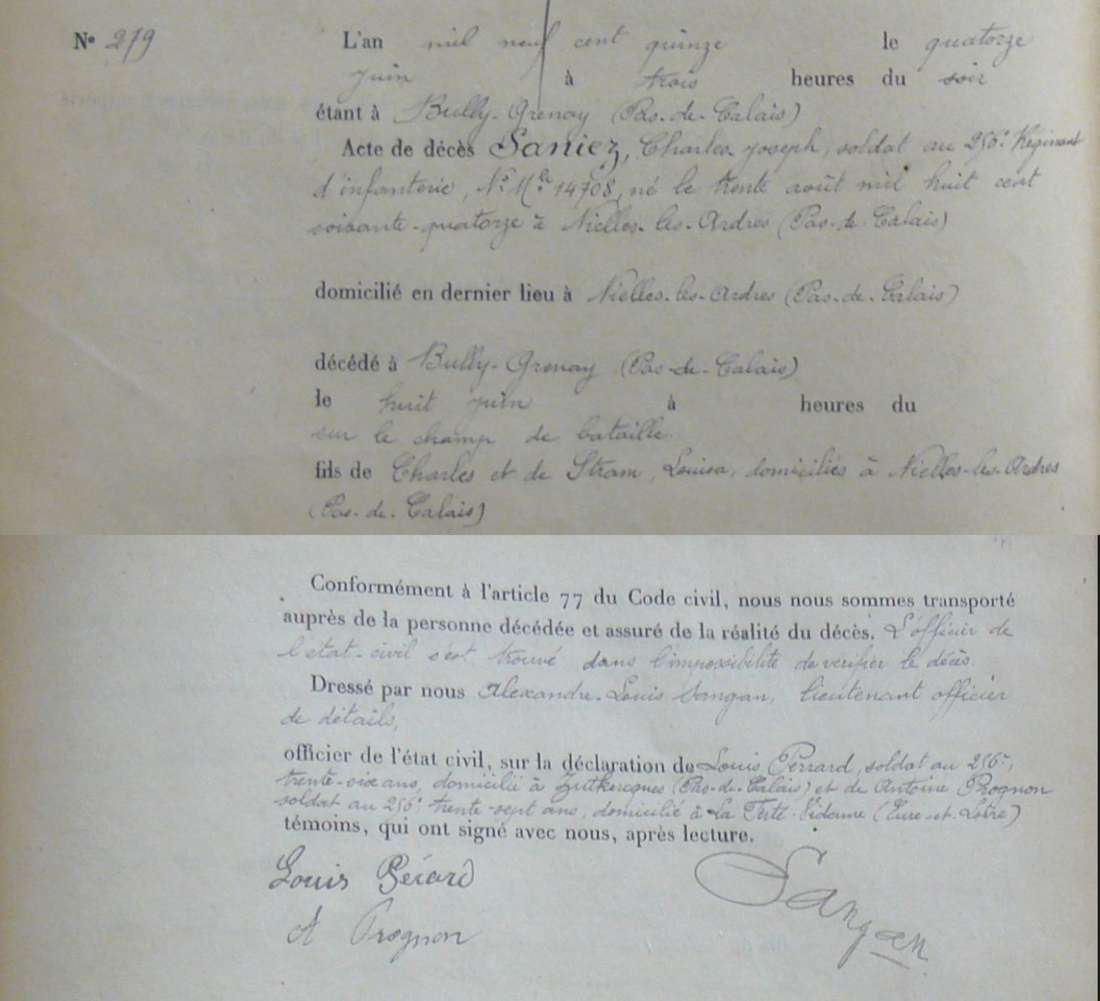 N° 279
L'an mil neuf cent quinze le quatorze
juin à trois heures du soir
étant à Bully-Grenay (Pas-de-Calais)
Acte de décès Saniez, Charles-Joseph, soldat au 256e Régiment
d'infanterie, N° Mle 14708, né le trente août mil huit cent
soixante-quatorze à Nielles-les-Ardres (Pas-de-Calais)
domicilié en dernier lieu à Nielles-les-Ardres (Pas-de-Calais)
décédé à Bully-Grenay (Pas-de-Calais)
le huit juin à heures du
sur le champ de bataille.
fils de Charles et de Stram, Louisa, domiciliés à Nielles-les-Ardres
(Pas-de-Calais)
Conformément à l'article 77 du Code civil, nous nous sommes transporté
auprès de la personne décédée et assuré de la réalité du décès. L'officier de
l'état-civil s'est trouvé dans l'impossibilité de vérifier le décès.
Dressé par nous Alexandre-Louis Sangan, lieutenant officier
de détails,
officier de l'état civil, sur la déclaration de Louis Perrard, soldat au 256e,
trente-six ans, domicilié à Zutkerques (Pas-de-Calais) et de Antoine Prognon
soldat au 256e trente-sept ans, domicilié à La Ferté-Vidame (Eure-et-Loire)
témoins, qui ont signé avec nous, après lecture.
Louis Pérard Sangan
A Prognon